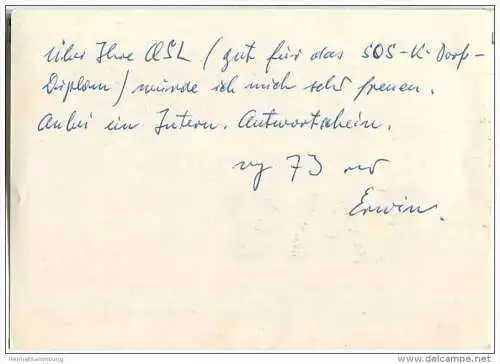 Über Ihre QSL (gut für das SOS-K-Dorf-
Diplom) würde ich mich sehr freuen.
Anbei ein Intern. Antwortschein.
vy 73 es
Erwin.
Heimatsammlung
www.oldthing.de